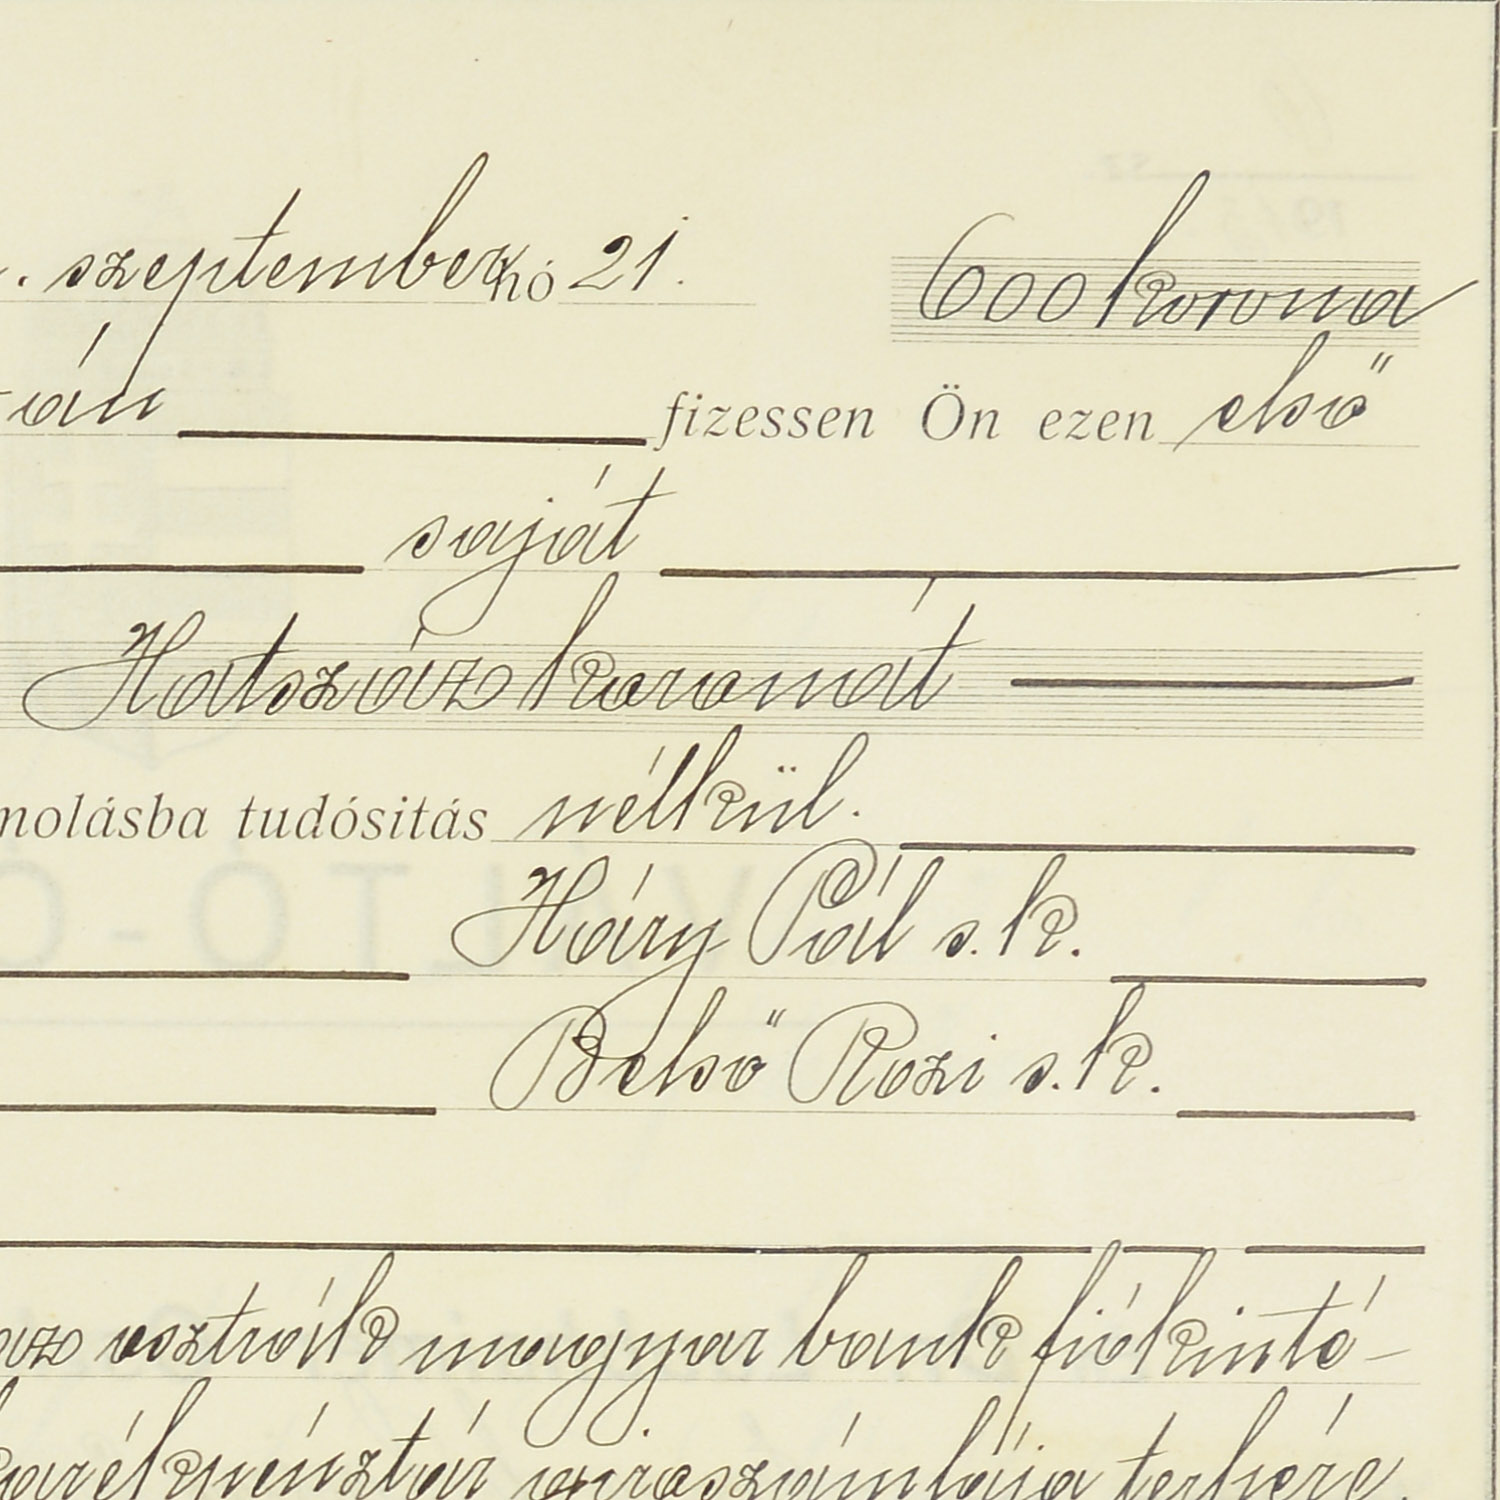 . szeptember hó 21. 600 korona
-án fizessen Ön ezen első
saját
Hatszáz koronát
molásba tudósitás nélkül.
Háry Pál s. k.
Belső Rozi s. k.
az osztrák magyar bank fiókinté-
karékpénztár girószámlája terhére.